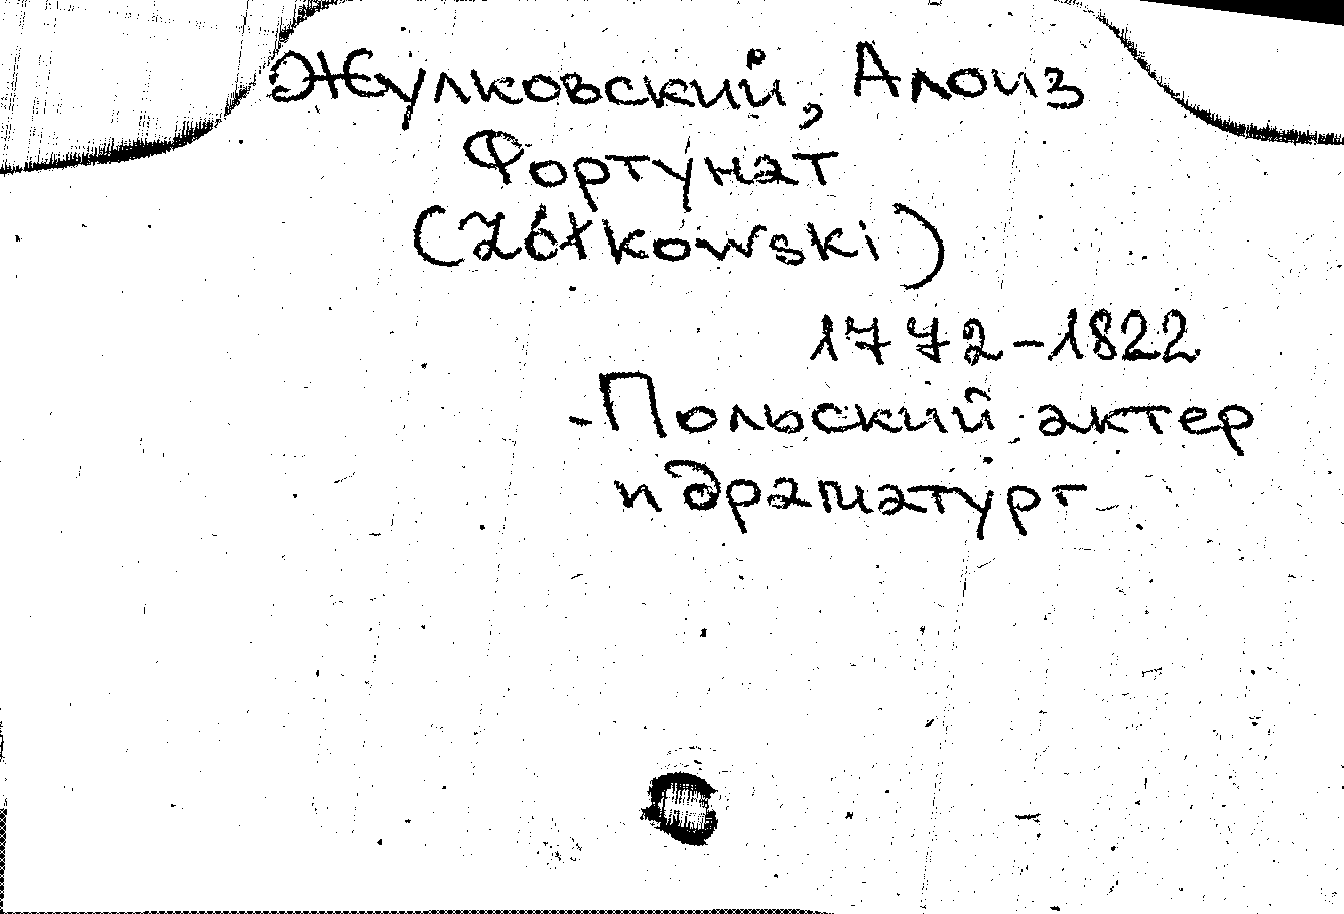 Жулковский, Алоиз
Фортунат
(Żółkowski)
1772-1822
-Польский актер
и драматург